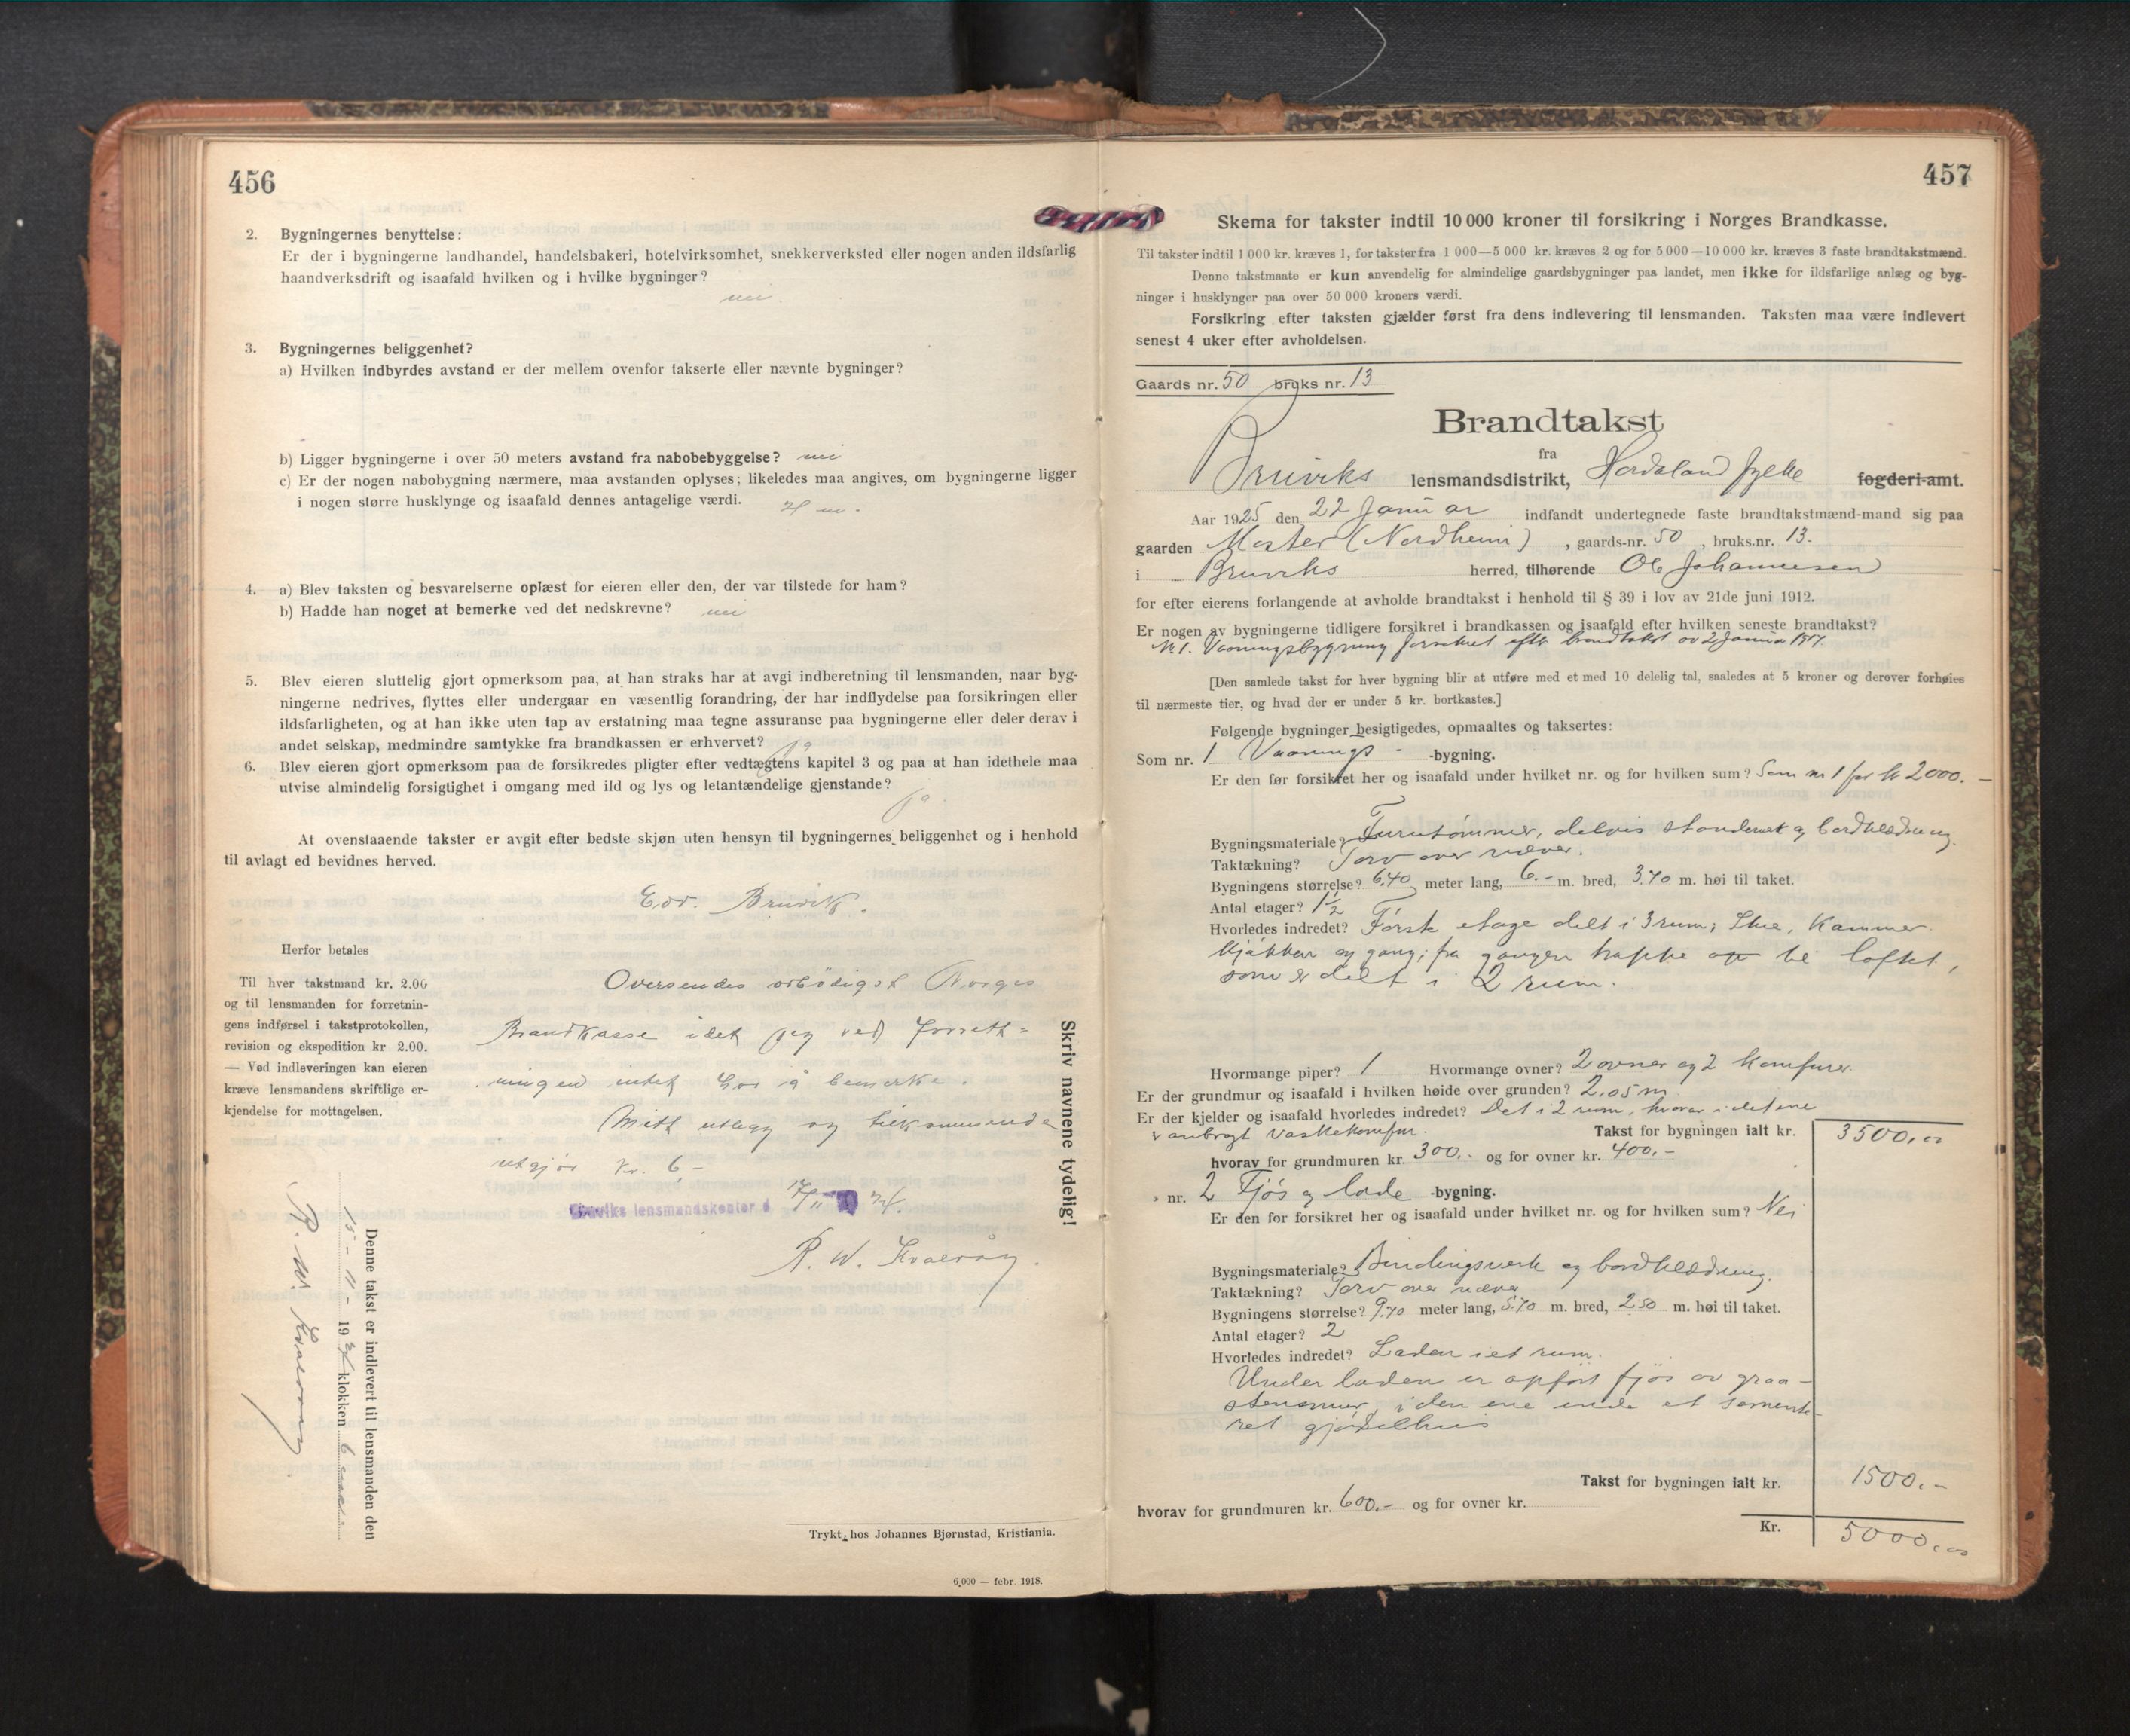 456
2. Bygningernes benyttelse:
Er der i bygningerne landhandel, handelsbakeri, hotelvirksomhet, snekkerverksted eller nogen anden ildsfarlig
haandverksdrift og isaafald hvilken og i hvilke bygninger?
nei.
3. Bygningernes beliggenhet?
a) Hvilken indbyrdes avstand er der mellem ovenfor takserte eller nævnte bygninger?
b) Ligger bygningerne i over 50 meters avstand fra nabobebyggelse? nei
c) Er der nogen nabobygning nærmere, maa avstanden oplyses; likeledes maa angives, om bygningerne ligger
i nogen større husklynge og isaafald dennes antagelige værdi.
m.
4. a) Blev taksten og besvarelserne oplæst for eieren eller den, der var tilstede for ham?
b) Hadde han noget at bemerke ved det nedskrevne? nei
5. Blev eieren sluttelig gjort opmerksom paa, at han straks har at avgi indberetning til lensmanden, naar byg-
ningerne nedrives, flyttes eller undergaar en væsentlig forandring, der har indflydelse paa forsikringen eller
ildsfarligheten, og at han ikke uten tap av erstatning maa tegne assuranse paa bygningerne eller deler derav i
andet selskap, medmindre samtykke fra brandkassen er erhvervet? ja
6. Blev eieren gjort opmerksom paa de forsikredes pligter efter vedtægtens kapitel 3 og paa at han idethele maa
utvise almindelig forsigtighet i omgang med ild og lys og letantændelige gjenstande?
ja
At ovenstaaende takster er avgit efter bedste skjøn uten hensyn til bygningernes beliggenhet og i henhold
til avlagt ed bevidnes herved.
Edv. Bruvik.
Herfor betales
Til hver takstmand kr. 2.00
og til lensmanden for forretnin-
gens indførsel i takstprotokollen,
revision og ekspedition kr 2.00.
— Ved indleveringen kan eieren
kræve lensmandens skriftlige er-
kjendelse for mottagelsen.
Oversendes ærbödigst Norges
Brandkasse idet jeg ved forrett=
ningen intet har å bemerke.
Mitt utlegg og tilkommende
utgjör kr. 6 -
Bruviks lensmandskontor d 17/11 24.
R. W. Kvalvåg.
Skriv navnene tydelig!
Denne takst er indlevert til lensmanden den
15 - 11 - 1924 klokken 6
R. W. Kvalvåg
Trykt hos Johannes Bjørnstad, Kristiania.
6,000 — febr. 1918.
457
Skema for takster indtil 10 000 kroner til forsikring i Norges Brandkasse.
Til takster indtil 1 000 kr. kræves 1, for takster fra 1 000—5 000 kr. kræves 2 og for 5 000—10 000 kr. kræves 3 faste brandtakstmænd.
Denne takstmaate er kun anvendelig for almindelige gaardsbygninger paa landet, men ikke for ildsfarlige anlæg og byg-
ninger i husklynger paa over 50 000 kroners værdi.
Forsikring efter taksten gjælder først fra dens indlevering til lensmanden. Taksten maa være indlevert
senest 4 uker efter avholdelsen.
Gaards nr. 50 bruks nr. 13
Brandtakst
fra
Bruviks lensmandsdistrikt, Hordaland fylke fogderi-amt.
Aar 1925 den 22 Januar indfandt undertegnede faste brandtakstmænd-mand sig paa
gaarden Moster (Nordheim), gaards-nr. 50, bruks.nr. 13.
i Bruviks herred, tilhørende Ole Johannesen
for efter eierens forlangende at avholde brandtakst i henhold til § 39 i lov av 21de juni 1912.
Er nogen av bygningerne tidligere forsikret i brandkassen og isaafald efter hvilken seneste brandtakst?
No 1. Vaaningsbygning forsikret efter brandtakst av 2 Januar 1917.
[Den samlede takst for hver bygning blir at utføre med et med 10 delelig tal, saaledes at 5 kroner og derover forhøies
til nærmeste tier, og hvad der er under 5 kr. bortkastes.]
Følgende bygninger besigtigedes, opmaaltes og taksertes:
Som nr. 1 Vaanings- -bygning.
Er den før forsikret her og isaafald under hvilket nr. og for hvilken sum? Som nr 1 for kr 2000.-
Bygningsmateriale? Furutömmer, delvis standerverk og bordklædning.
Taktækning? Torv over næver.
Bygningens størrelse? 6,40 meter lang, 6.- m. bred, 3,70 m. høi til taket.
Antal etager? 1½
Hvorledes indredet? Förste etage delt i 3 rum; Stue, Kammer
kjökken og gang; fra gangen trappe op til loftet,
som er delt i 2 rum.
Hvormange piper? 1 Hvormange ovner? 2 ovner og 2 komfurer.
Er der grundmur og isaafald i hvilken høide over grunden? 2,05 m
Er der kjelder og isaafald hvorledes indredet? Det i 2 rum, hvorav i det ene
er anbragt vaskekomfur.
Takst for bygningen ialt kr. 3500,00
hvorav for grundmuren kr. 300.- og for ovner kr. 400.-
» nr. 2 Fjös og lade -bygning.
Er den før forsikret her og isaafald under hvilket nr. og for hvilken sum? Nei
Bygningsmateriale? Bindingsverk og bordklædning.
Taktækning? Torv over næver
Bygningens størrelse? 9,70 meter lang, 5,70 m. bred, 2,50 m. høi til taket.
Antal etager? 2
Hvorledes indredet? Laden i et rum.
Under laden er opfört fjös av graa-
stensmur, i den ene ende et sement-
ret gjödselhus
Takst for bygningen ialt kr. 1500.-
hvorav for grundmuren kr. 600.- og for ovner kr.
Kr. 5000,00